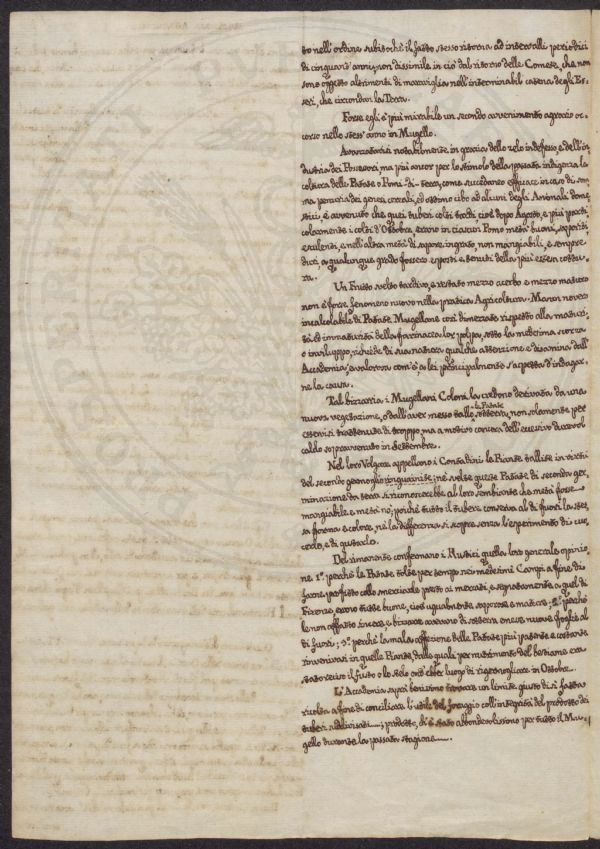 to nell'ordine subitochè il fatto stesso ritorna ad intervalli periodici
di cinquant'anni, non dissimile in ciò dal ritorno delle Comete, che non
sono oggetto altrimenti di maraviglia nell'interminabil catena degli Es-
seri, che circondan la Terra.
Forse egli è più mirabile un secondo avvenimento agrario oc-
corso nello stess'anno in Mugello.
Avanzatasi notabilmente, in grazia dello zelo indefesso, e dell'in-
dustria dei Possessori, ma più ancor per lo stimolo della passata indigenza la
coltura delle Patate o Pomi-di-terra, come succedaneo efficace in caso di som-
ma penuria dei generi cereali, ed ottimo cibo ad alcuni degli Animali dome-
stici, è avvenuto che quei tuberi colti tardi cioè dopo Agosto, e più parti-
colarmente i colti d'Ottobre, erano in ciascun Pomo metà buoni, saporiti,
esculenti, e nell'altra metà di sapore ingrato, non mangiabili, e sempre
duri, a qualunque grado fossero esposti e tenuti della più essen cottu-
ra.
Un Frutto svelto tardivo, e restato mezzo acerbo e mezzo maturo
non è forse fenomeno nuovo nella pratica Agricoltura. Ma un novero
incalcolabile di Patate Mugellane così dimezzate rispetto alla maturi-
tà ed immaturità della farinacea lor polpa, sotto la medesima scorza
o inviluppo, richiede di sua natura qualche attenzione e disamina dall'
Accademia, e valorosa com'è, a lei principalmente s'aspetta d'indagar-
ne la causa.
Tal bizzarria i Mugellani Coloni la credono derivata da una
nuova vegetazione, o dall'aver messo dalle Patate sotterra, non solamente per
esservi trattenute di troppo, ma a motivo ancora dell'eccessivo durevol
caldo sopravvenuto in Settembre.
Nel loro Volgare appellono i Contadini le Piante tallite in virtù
del secondo germoglio ringuainite; nè svelte queste Patate di seconda ger-
minazione da terra si riconoscerebbe al loro sembiante che metà fosse
mangiabile e metà no; poichè tutto il tubere conserva al di fuori la stes-
sa forma e colore, nè la differenza si scopre senza l'esperimento di cuo-
cerlo, e di gustarlo.
Del rimanente confermano i Rustici quella loro generale opinio-
ne 1.° perchè le Patate tolte per tempo nei medesimi Campi a fine di
farne profitto collo mercarle presto ai mercati, e segnatamente a quel di
Firenze, erano tutte buone, cioè ugualmente saporose e mature; 2.° perchè
le non affatto sincere, e bizzarre avevano di sotterra emesse nuove foglie al
di fuori; 3.° perchè la mala affezione delle Patate più patente e costante
rinvenivasi in quelle Piante, dalle quali per nutrimento del bestiame era
stato reciso il fusto o lo stelo ond'ebber luogo di rigermogliare in Ottobre.
L'Accademia saprà benissimo trovare un limite giusto di sì fatta
ricolta a fine di conciliare l'utile del foraggio coll'integrità del prodotto dei
tuberi addivisati; prodotto, ch'è stato abbondantissimo per tutto il Mu-
gello durante la passata stagione.